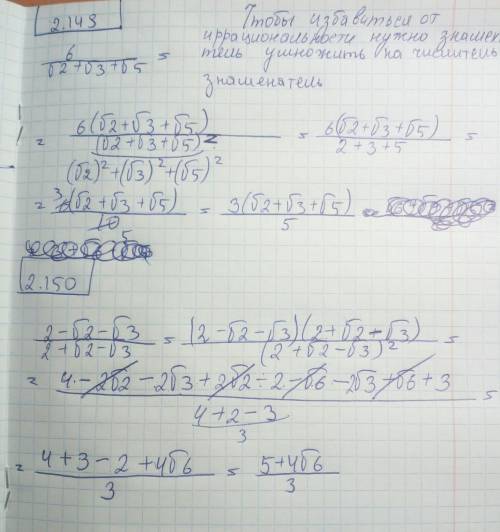 2.149
Чтобы избавиться от
иррациональности нужно знамен
тель умножить на числитель
знаменатель
6/(√2+√3+√5) =
= 6(√2+√3+√5)/(√2+√3+√5)² (√2)²+(√3)²+(√5)² = 6(√2+√3+√5)/(2+3+5) =
= 3 6(√2+√3+√5)/10 5 = 3(√2+√3+√5)/5
2.150
(2-√2-√3)/(2+√2-√3) = (2-√2-√3)(2+√2-√3)/(2+√2-√3)² =
= (4-2√2-2√3+2√2-2-√6-2√3+√6+3)/(4+2-3) 3 =
= (4+3-2+4√6)/3 = (5+4√6)/3